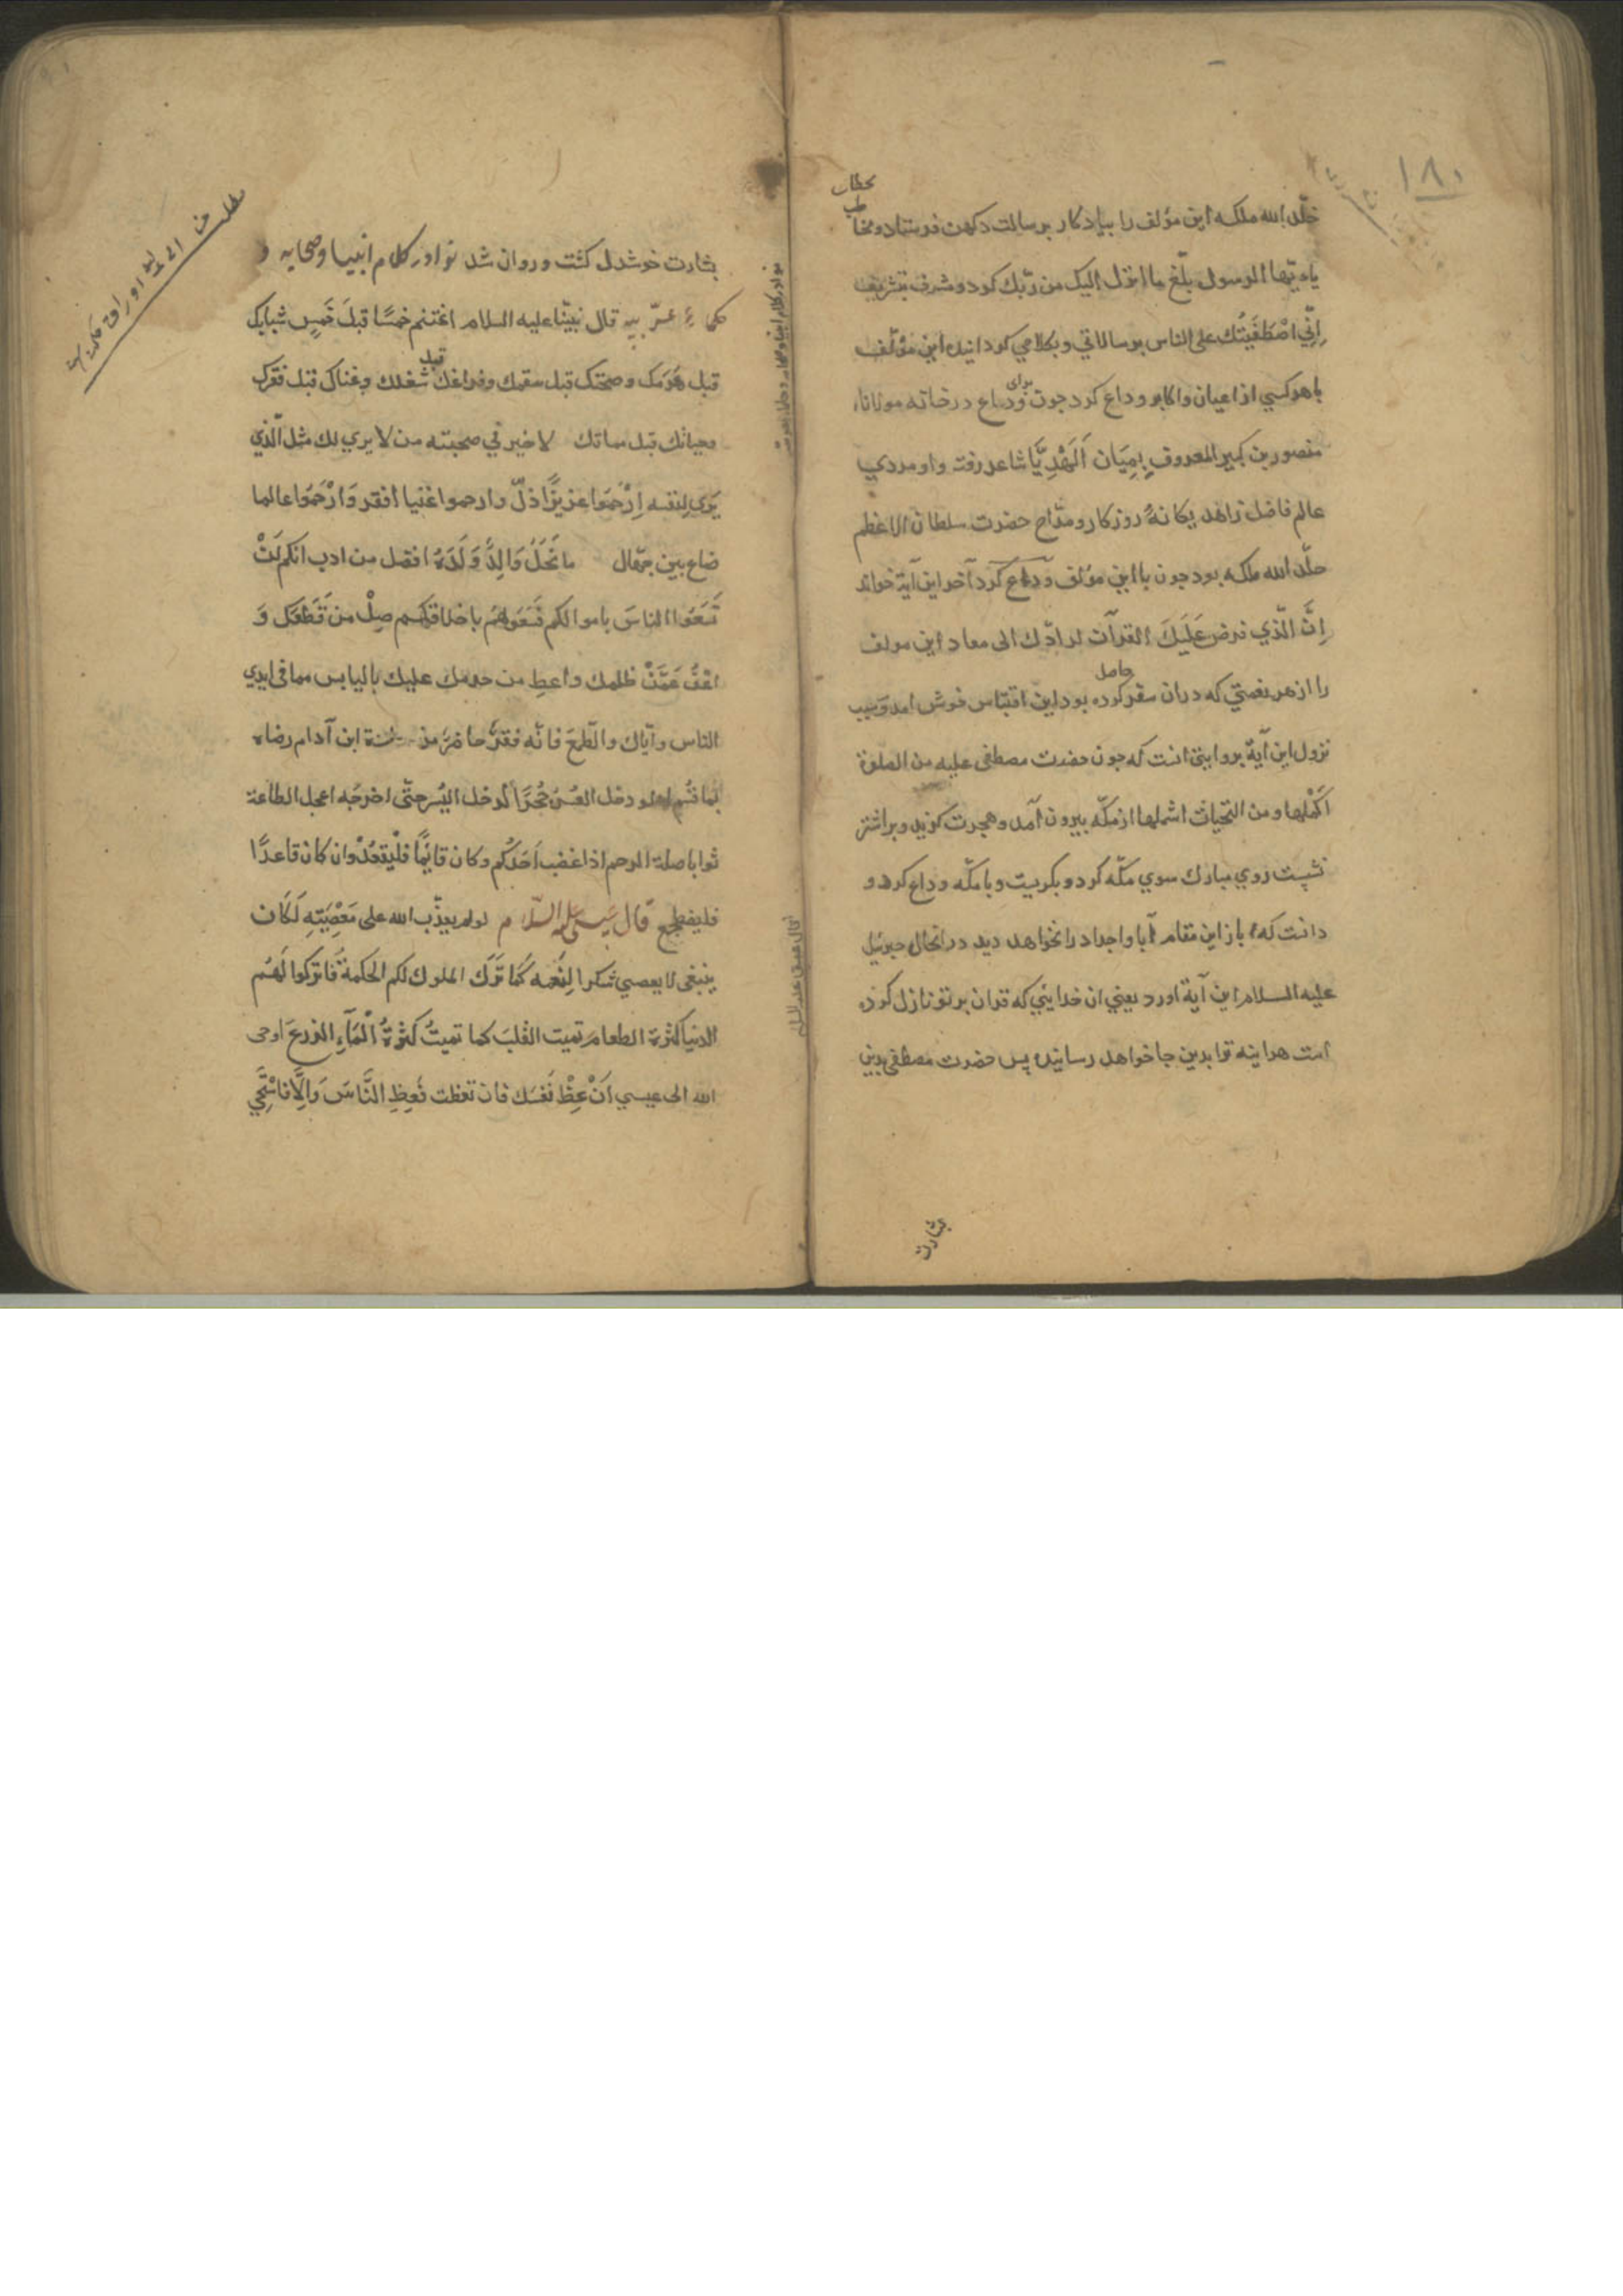 ١٨٠
بخطاب
خلّد الله ملكه این مؤلف را بیادکار برسالت دکهن فرستاد و مخاطب
یا ایّها الرسول بلّغ ما انزل الیک من ربّك کرد و مشرف بتشریف
اِنِّي اصْطَفَيْتُك على الناس برسالاتي وبكلامي کردانید این مؤلّف
با هرکسي از اعیان واکابر وداع کرد جون برای وداع در خانه مولانا
منصور بن کبیر المعروف بِمِیَان اَلَهْدِیّا شاعر رفته واو مردي
عالم فاضل زاهد یکانهٔ روزکار ومدّاح حضرت سلطان الاعظم
خلّد الله ملکه بود جون با این مؤلف وداع کرد آخر این آیة خواند
اِنَّ الّذي فرض عَلَيكَ القرآن لرادّك الى معاد این مولف
را از هر نعمتي که دران سفر حاصل کرده بود این اقتباس خوش امد وسبب
نزول این آیةٔ بروایتی انت که جون حضرت مصطفی علیه من الصلوة
اکملها و من التحیات اشملها از مکّه بیرون آمد وهجرت کزید وبراشتر
نشیت روي مبارك سوي مکّه کرد وبکریت وبا مکّه وداع کرد و
دانت که باز این مقام آبا واجداد را نخواهد دید درانحال جبرئیل
علیه السلام این آیة اورد یعني ان خدایئي که قران بر تو نازل کرده
است هراینه ترا بدین جا خواهد رسانید پس حضرت مصطفی بدین
بشارت
بشارت خوشدل کشت و روان شد نوادر کلام انبیا وصحابه و
حکماء عربیه قال نبيّنا عليه السلام اغتنم خمسًا قبلَ خَمسٍ شبابك
قبل هَرَمك و صحتك قبل سقمك وفراغك قبل شغلك وغناك قبل فقرك
وحياتك قبل مماتك لا خير في صحبته من لا يرى لك مثل الّذي
يَرى لنفسه اِرْحَمُوا عزيزًا ذلّ وارحموا غنيا افقر وَارْحَمُوا عالما
ضاع بين جهّال ما نَحَلَ وَالِدٌ وَلَدَهُ افضل من ادب انكم لَنْ
تَسَعُوا الناسَ باموالكم فَسَعُوهُم باخلاقكم صِلْ من قَطَعَك وَ
اعْفُ عَمَّنْ ظلمك واعطِ من حرمك عليك بالياس مما في ايدي
الناس وآياك والطّمعَ فانّه فقرٌ حاضرٌ ابن آدام رضاه
لو دخل العُسْرُ حُجرًا لدخل اليُسر حتّى اخرجَه اعجل الطاعة
ثوابا صلة الرحم اذا غضب اَحَدُكُم وكان قائمًا فلْيقعُدْ وان كان قاعدًا
فليضطجع قال عيسى عليه السّلام لو لم يعذّب الله على مَعْصِيَتِهِ لَكَان
ينبغي لا يعصي شكرا لنِعَمِه كَما تَرَك الملوك لكم الحكمةُ فاتركوا لَهُم
الدنيا كثرة الطعام تميت القلبَ كما تميتُ كثرةُ الْمَآءِ الزرعَ اوحى
الله الى عيسي اَنْ عِظْ نَفسَك فان تعظت فَعِظِ النَّاسَ وَالّا فَاسْتَحْي
نوادر کلام انبیا وصحابه وحکماء عربیه
قال عیسی علیه السلام